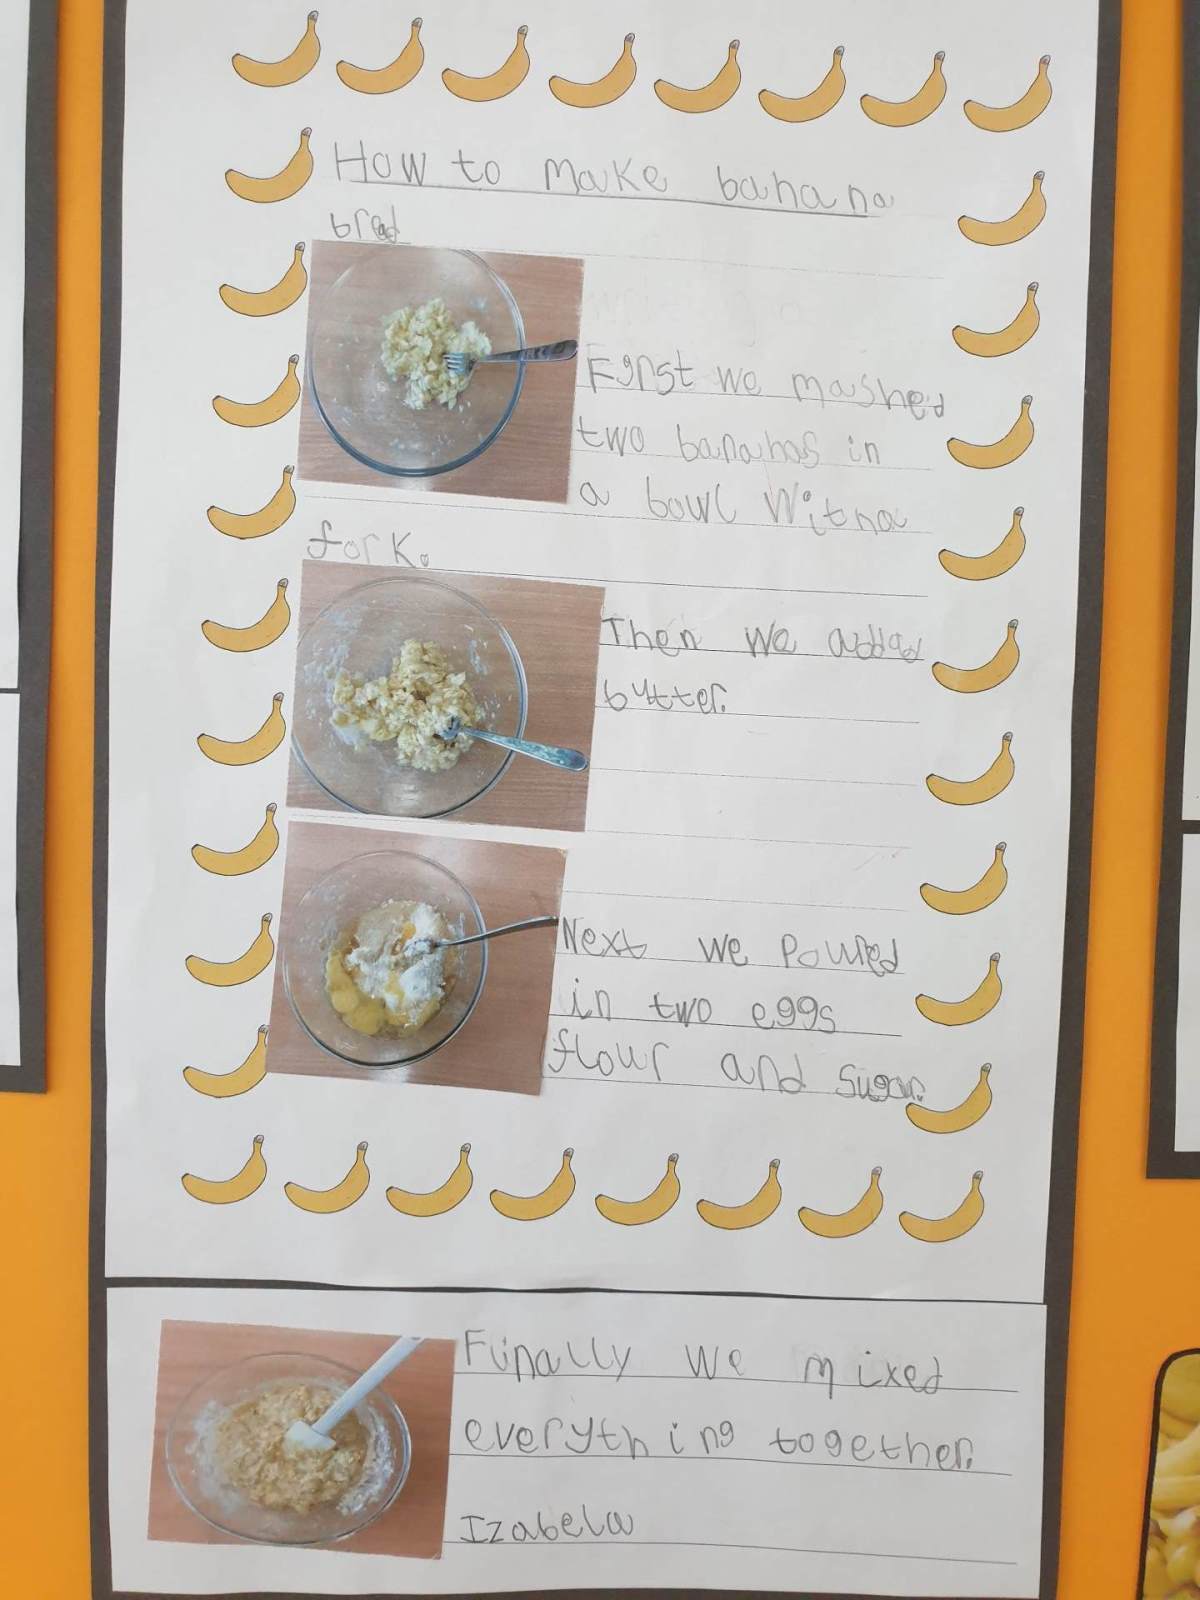 How to make banana
bread
First we mashed
two bananas in
a bowl with a
fork.
Then we added
butter.
Next we poured
in two eggs
flour and sugar.
Finally we mixed
everything together.
Izabela